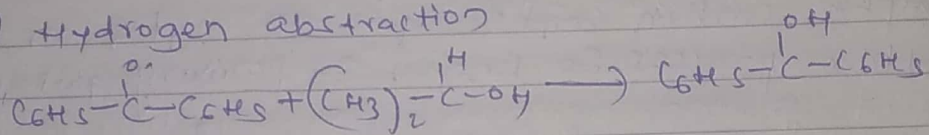 Hydrogen abstraction
O.       H       OH
C6H5-C-C6H5 + (CH3)2-C-OH ⟶ C6H5-C-C6H5